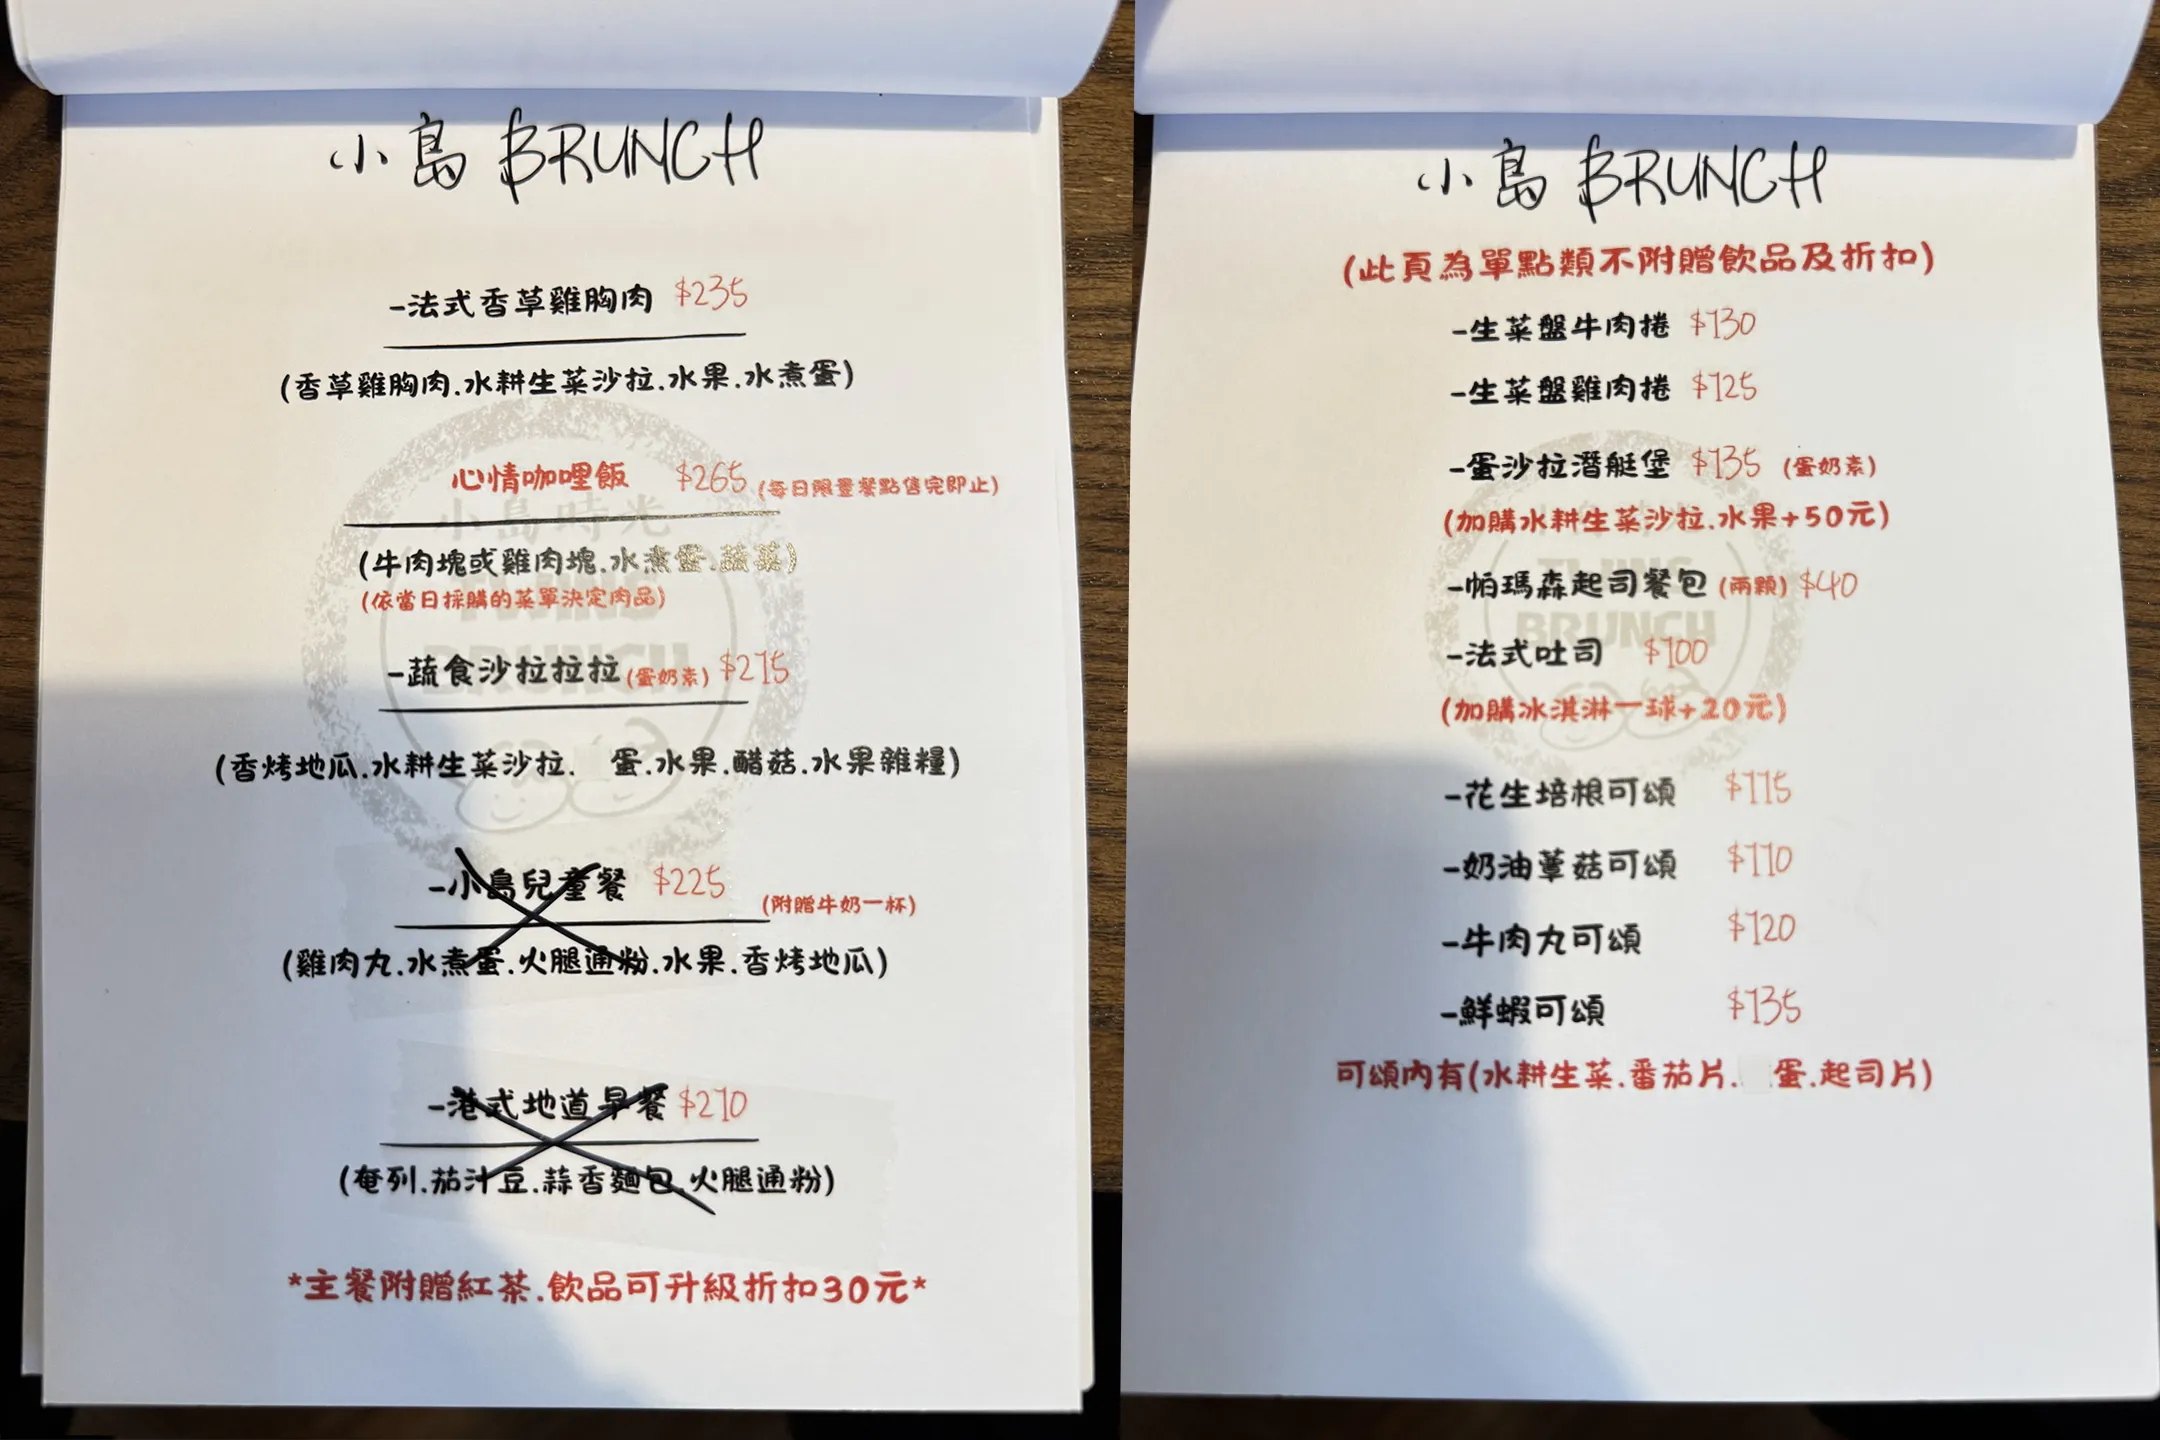 小島 BRUNCH
-法式香草雞胸肉 $235
(香草雞胸肉.水耕生菜沙拉.水果.水煮蛋)
心情咖哩飯 $265 (每日限量餐點售完即止)
(牛肉塊或雞肉塊.水煮蛋.蔬菜)
(依當日採購的菜單決定肉品)
-蔬食沙拉拉拉(蛋奶素) $275
(香烤地瓜.水耕生菜沙拉. 蛋.水果.醋菇.水果雜糧)
-小島兒童餐 $225 (附贈牛奶一杯)
(雞肉丸.水煮蛋.火腿通粉.水果.香烤地瓜)
-港式地道早餐 $270
(奄列.茄汁豆.蒜香麵包.火腿通粉)
*主餐附贈紅茶.飲品可升級折扣30元*
小島時光
TWINS
BRUNCH
小島 BRUNCH
(此頁為單點類不附贈飲品及折扣)
-生菜盤牛肉捲 $130
-生菜盤雞肉捲 $125
-蛋沙拉潛艇堡 $135 (蛋奶素)
(加購水耕生菜沙拉.水果+50元)
-帕瑪森起司餐包 (兩顆) $40
-法式吐司 $100
(加購冰淇淋一球+20元)
-花生培根可頌 $115
-奶油蕈菇可頌 $110
-牛肉丸可頌 $120
-鮮蝦可頌 $135
可頌內有(水耕生菜.番茄片. 蛋.起司片)
TWINS
BRUNCH